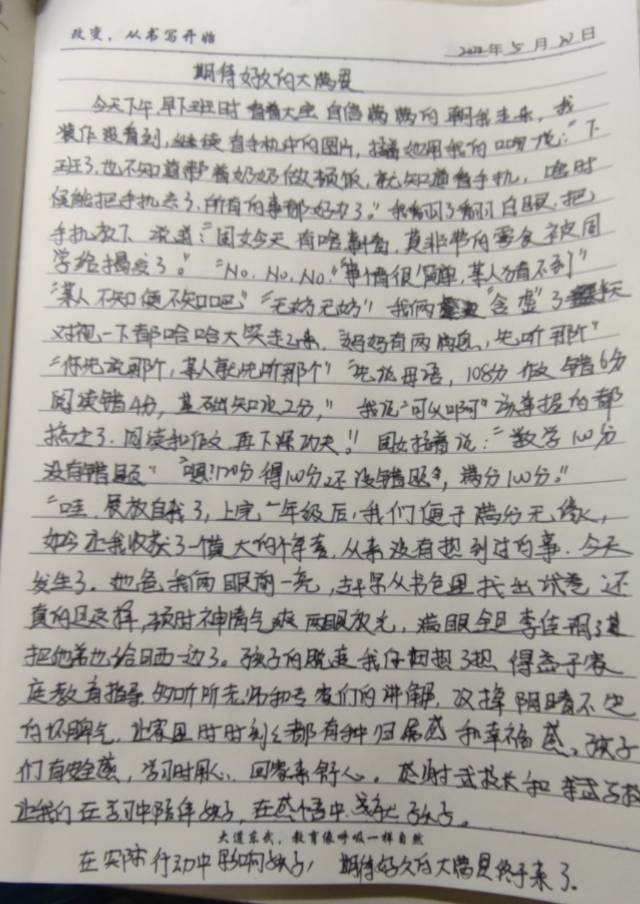 改变，从书写开始
2020年5月20日
期待好久的大满贯
今天下午，早下班时 看着大宝自信满满的朝我走来，我
装作没看到，继续看手机中的图片，接着她用我的口吻说：“下
班了，也不知道帮着奶奶做顿饭，就知道看手机，啥时
候能把手机丢了，所有的事都好办了。”我翻了翻白眼，把
手机放下 说道：“闺女今天有啥新闻，莫非带的零食被同
学给揭发了。”“No. No. No.”“事情很简单，某人万看不到”
“某人不知便不知吧”“无妨无妨”我俩“含虚”了
对视一下都哈哈大笑起来，妈妈有两个消息，先听那个”
“你先说那个，某人就先听那个”“先说母语，108分作文错6分
阅读错4分，基础知识2分，”我说“可以啊”该掌握的都
搞定了，阅读和作文再下深功夫！！闺女接着说：“数学100分
没有错题”“嗯！120分得100分还没错题，满分100分。”
“哇，展放自我了，上完一年级后，我们便于满分无缘，
如今让我收获了一个莫大的惊喜，从来没有想到过的事，今天
发生了。她爸我俩眼前一亮，赶紧从书包里找出试卷 还
真的是这样，顿时神清气爽 两眼放光，满眼全是李佳
把他弟也给晒一边了。孩子的脱变我仔细想了想 得益于家
庭教育指导 的听所老师和专家们的讲解，改掉阴晴不定
的坏脾气，让家里时时刻刻都有种归属感和幸福感。孩子
们有安全感，学习时用心，回家来舒心。感谢武校长和
让我们在学习中陪伴孩子，在感悟中 孩子。
大道东武，教育像呼吸一样自然
在实际行动中影响孩子，期待好久的大满贯终于来了。